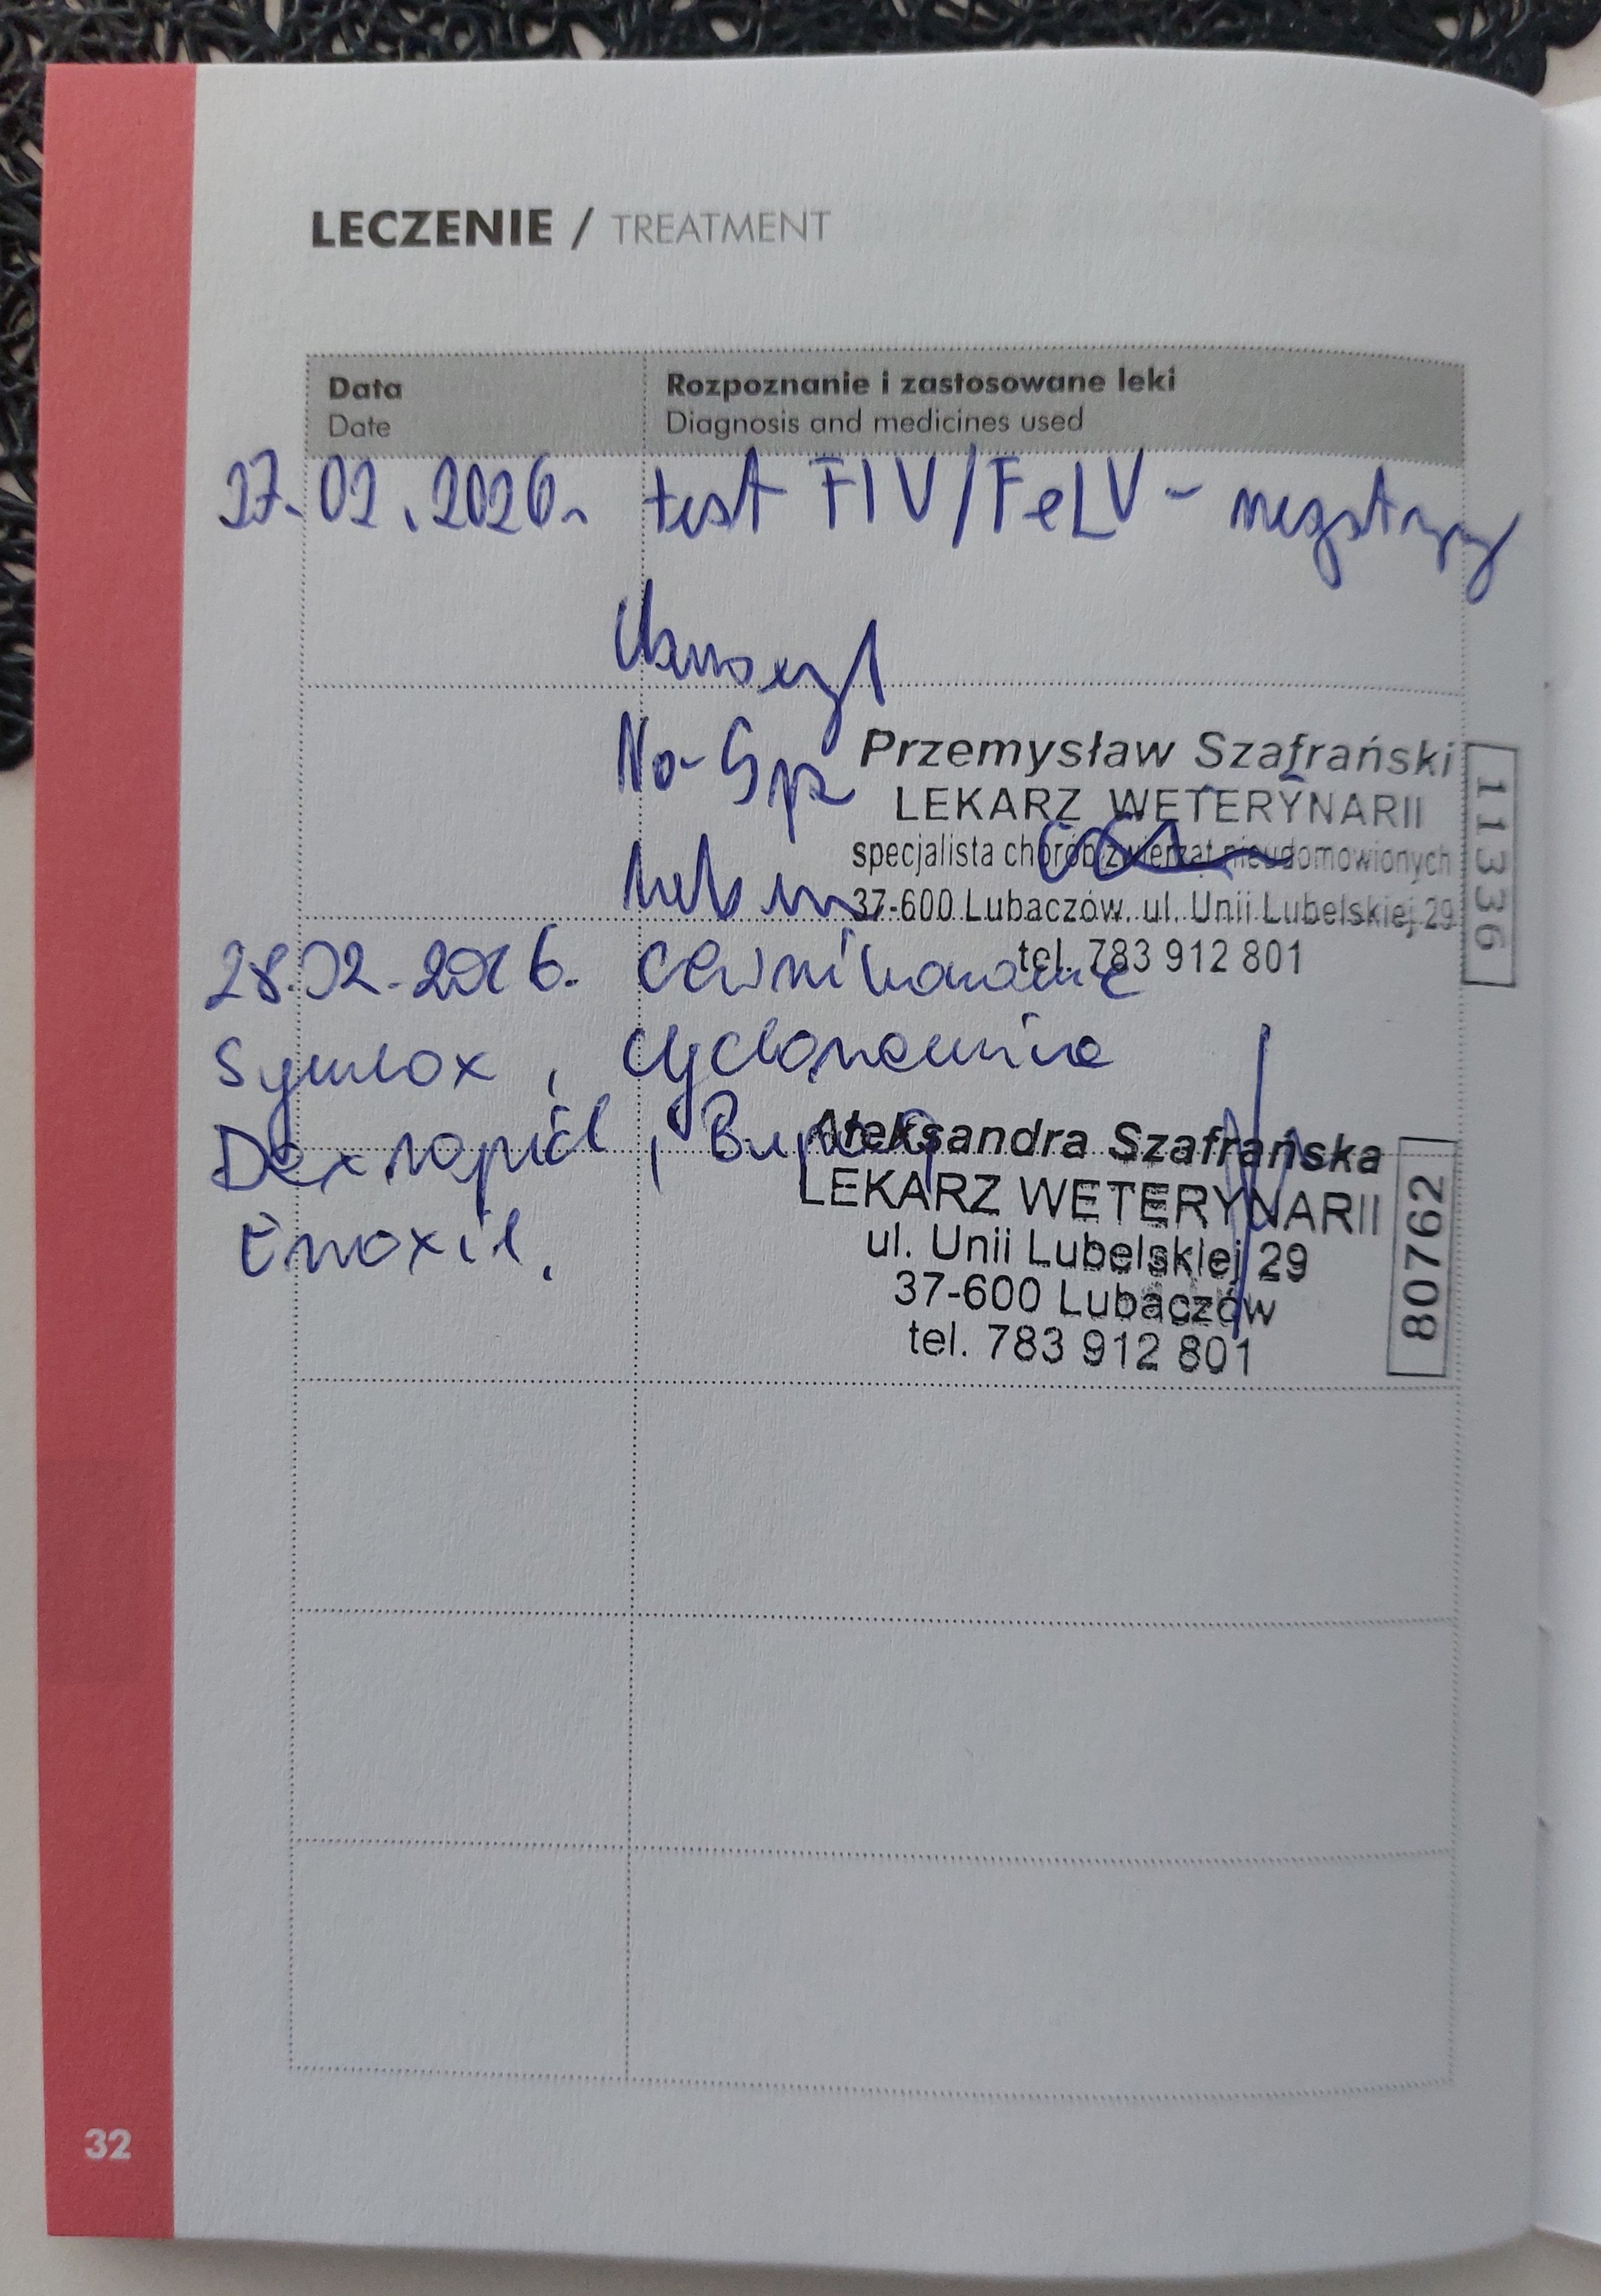 LECZENIE / TREATMENT
Data
Date
Rozpoznanie i zastosowane leki
Diagnosis and medicines used
27.02.2026r test FIV/FeLV - negatywny
No-Spa
Przemysław Szafrański
LEKARZ WETERYNARII
specjalista chorób zwierząt nieudomowionych
37-600 Lubaczów, ul. Unii Lubelskiej 29
tel. 783 912 801
11336
28.02.2026. cewnikowanie
Synulox, cyclonamine
Dexrapid,
Enoxil.
Aleksandra Szafrańska
LEKARZ WETERYNARII
ul. Unii Lubelskiej 29
37-600 Lubaczów
tel. 783 912 801
80762
32